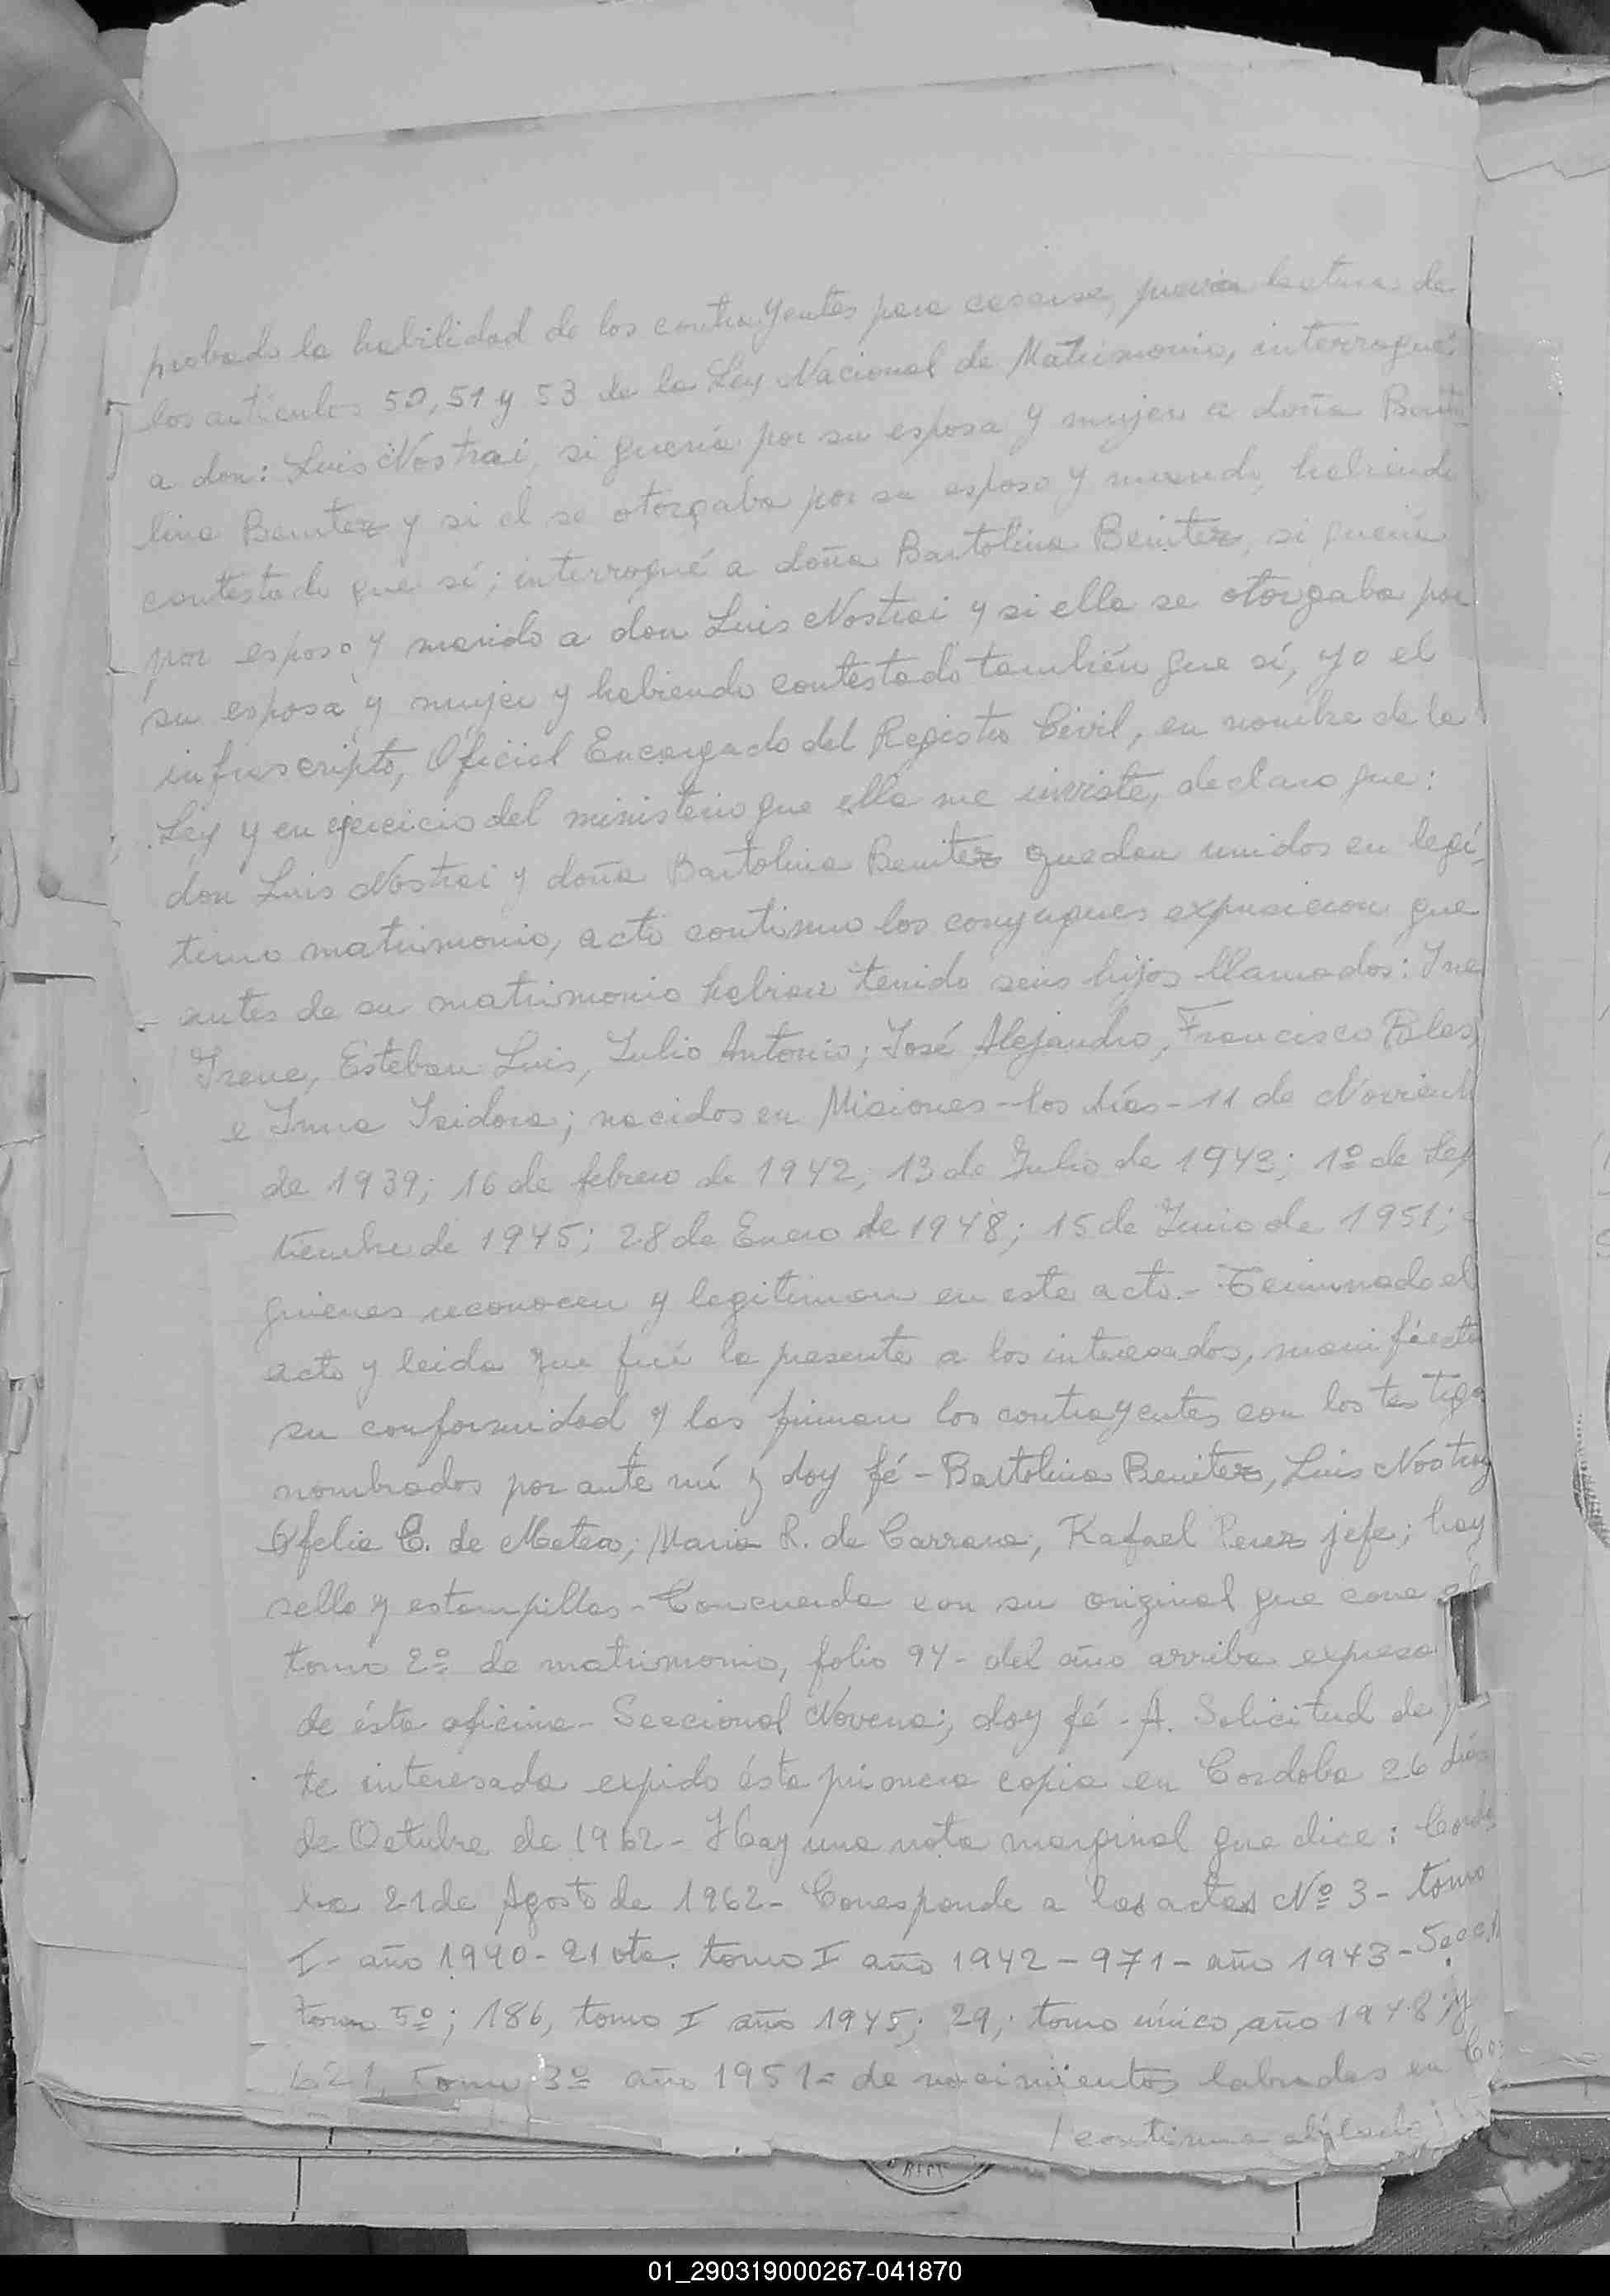 probado la habilidad de los contrayentes para casarse, previa lectura de
los artículos 50, 51 y 53 de la Ley Nacional de Matrimonio, interrogué:
a don: Luis Nostrai, si quería por su esposa y mujer a doña Barto
lina Benitez y si el se otorgaba por su esposo y marido, habiendo
contestado que sí; interrogué a doña Bartolina Benitez, si quería
por esposo y marido a don Luis Nostrai y si ella se otorgaba por
su esposa y mujer y habiendo contestado también que sí, yo el
infrascripto, Oficial Encargado del Registro Civil, en nombre de la
Ley y en ejercicio del ministerio que ella me inviste, declaro que:
don Luis Nostrai y doña Bartolina Benitez quedan unidos en legí
timo matrimonio, acto continuo los conyugues expusieron que
antes de su matrimonio habian tenido seis hijos llamados:
Irene, Esteban Luis, Julio Antonio; José Alejandro, Francisco
e Isidora; nacidos en Misiones - los días - 11 de Noviemb
de 1939; 16 de febrero de 1942; 13 de Julio de 1943; 1º de Sep
tiembre de 1945; 28 de Enero de 1948; 15 de Junio de 1951;
quienes reconocen y legitiman en este acto. - Terminado el
acto y leida que fué la presente a los interesados, manifiesta
su conformidad y las firman los contrayentes con los testigo
nombrados por ante mí y doy fé - Bartolina Benitez, Luis Nostray
Ofelia C. de Mateo; Maria R. de Carrara; Rafael Perez jefe; hay
sello y estampillas - Concuerda con su original que corre al
tomo 2º de matrimonio, folio 94 - del año arriba expresa
de ésta oficina - Seccional Novena; doy fé - A. Solicitud de
te interesada expido ésta primera copia en Cordoba 26 días
de Octubre de 1962 - Hay una nota marginal que dice: Cordo
ba 21 de Agosto de 1962 - Coresponde a las actas Nº 3 - tomo
I - año 1940 - 21 vta. tomo I año 1942 - 971 - año 1943 - Secc.
tomo 5º; 186, tomo I año 1945; 29; tomo único, año 1948 y
621, Tomo 3º año 1951 = de nacimientos labradas en
/ continua
01_290319000267-041870